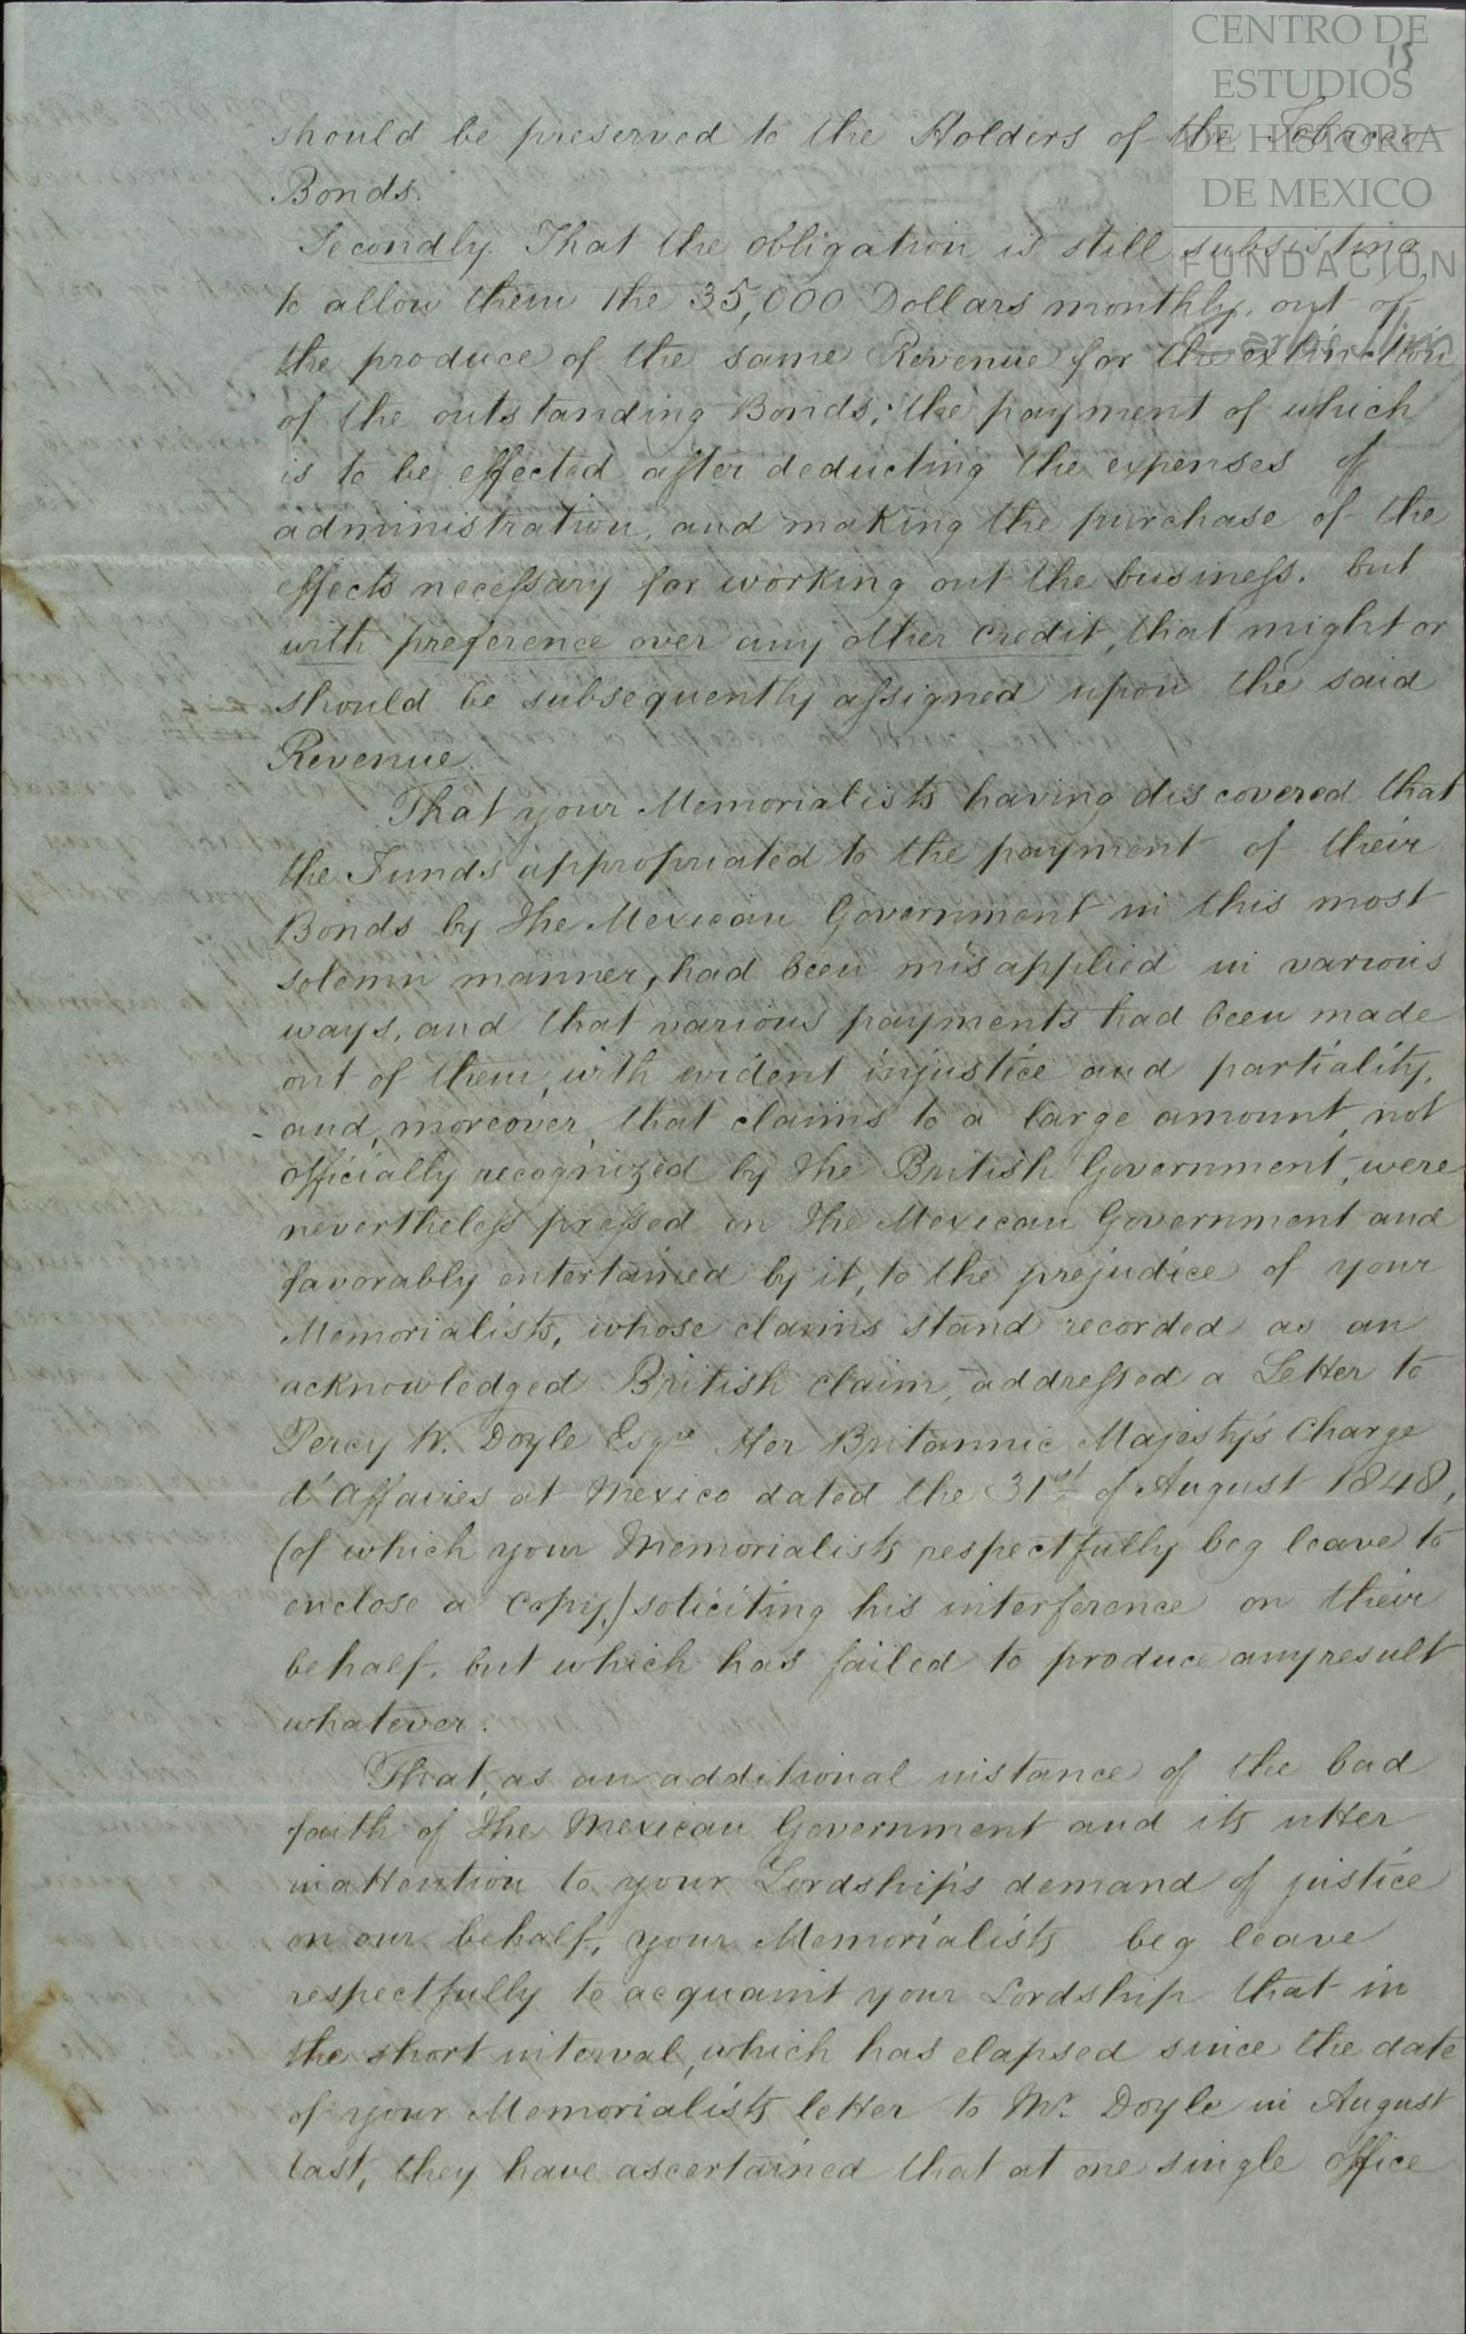 CENTRO DE
ESTUDIOS
DE HISTORIA
DE MEXICO
FUNDACIÓN
Carlos Slim
15
should be preserved to the Holders of the Tobacco
Bonds.
Secondly. That the obligation is still subsisting
to allow them the 35,000 Dollars monthly, out of
the produce of the same Revenue for the extinction
of the outstanding Bonds; the payment of which
is to be effected after deducting the expenses of
administration, and making the purchase of the
effects necessary for working out the business. but
with preference over any other credit, that might or
should be subsequently assigned upon the said
Revenue.
That your Memorialists having discovered that
the Funds appropriated to the payment of their
Bonds by the Mexican Government in this most
solemn manner, had been misapplied in various
ways, and that various payments had been made
out of them, with evident injustice and partiality,
and, moreover, that claims to a large amount, not
officially recognized by the British Government, were
nevertheless pressed on the Mexican Government and
favorably entertained by it, to the prejudice of your
Memorialists, whose claims stand recorded as an
acknowledged British claim, addressed a Letter to
Percy W. Doyle Esqre Her Britannic Majesty's Charge
d'Affaires at Mexico dated the 31st of August 1848,
(of which your Memorialists respectfully beg leave to
enclose a copy,) soliciting his interference on their
behalf, but which has failed to produce any result
whatever.
That, as an additional instance of the bad
faith of the Mexican Government and its utter
inattention to your Lordship's demand of justice
on our behalf, your Memorialists beg leave
respectfully to acquaint your Lordship that in
the short interval, which has elapsed since the date
of your Memorialists letter to Mr. Doyle in August
last, they have ascertained that at one single office